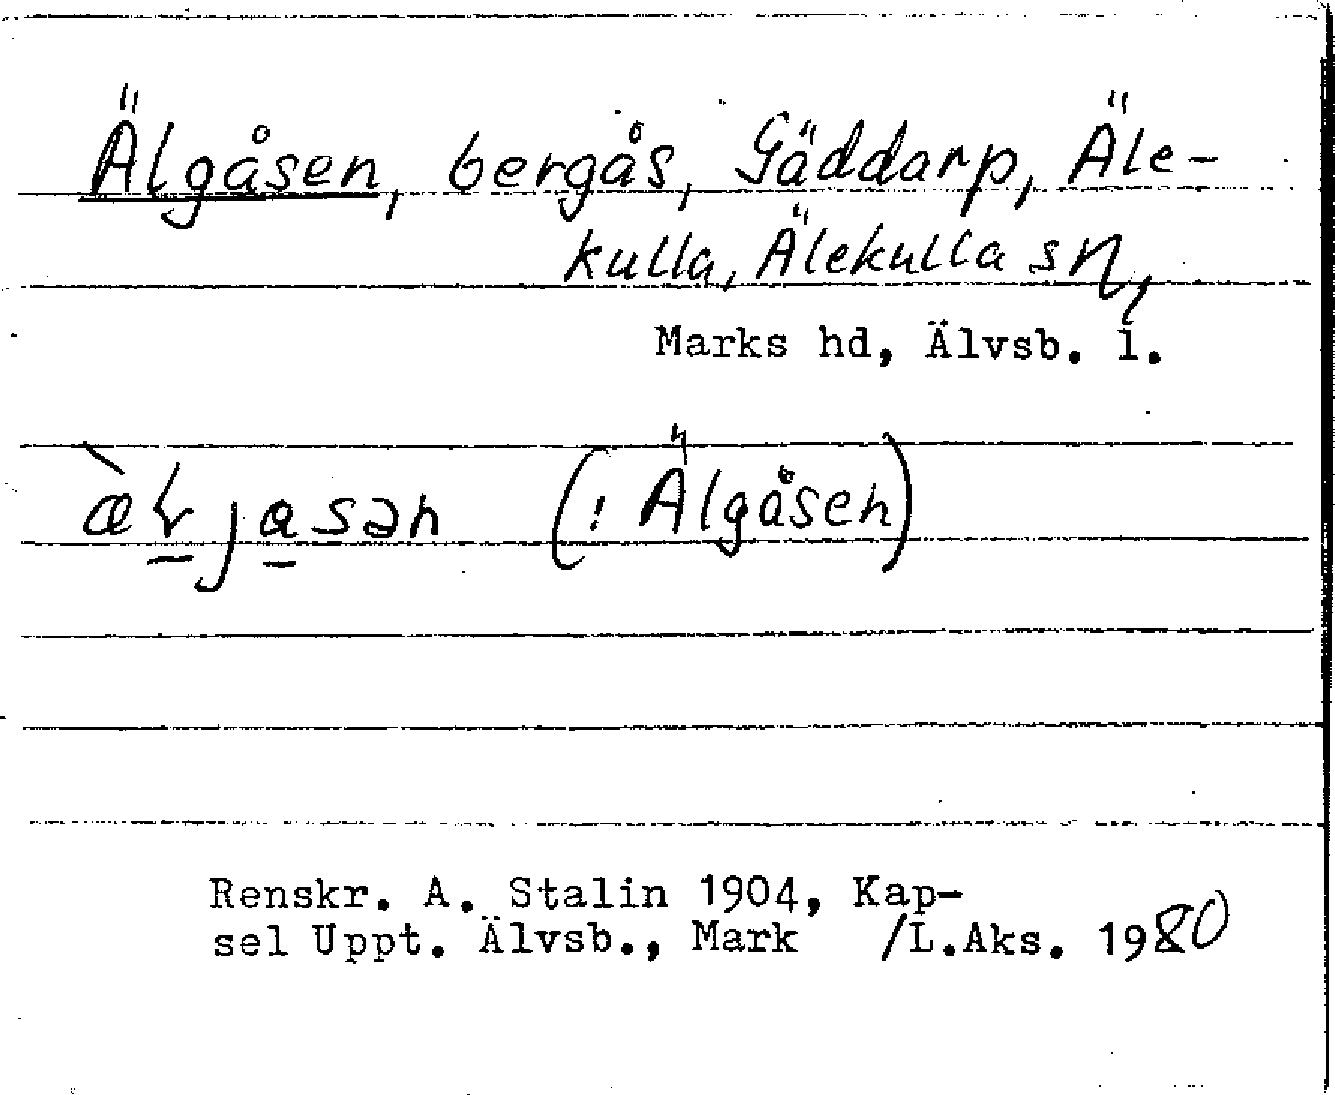 Älgåsen, bergås, Gäddarp, Äle-
kulla, Älekulla sn,
Marks hd, Älvsb. l.
(: Älgåsen)
Renskr. A. Stalin 1904, Kap-
sel Uppt. Älvsb., Mark /L.Aks. 1980